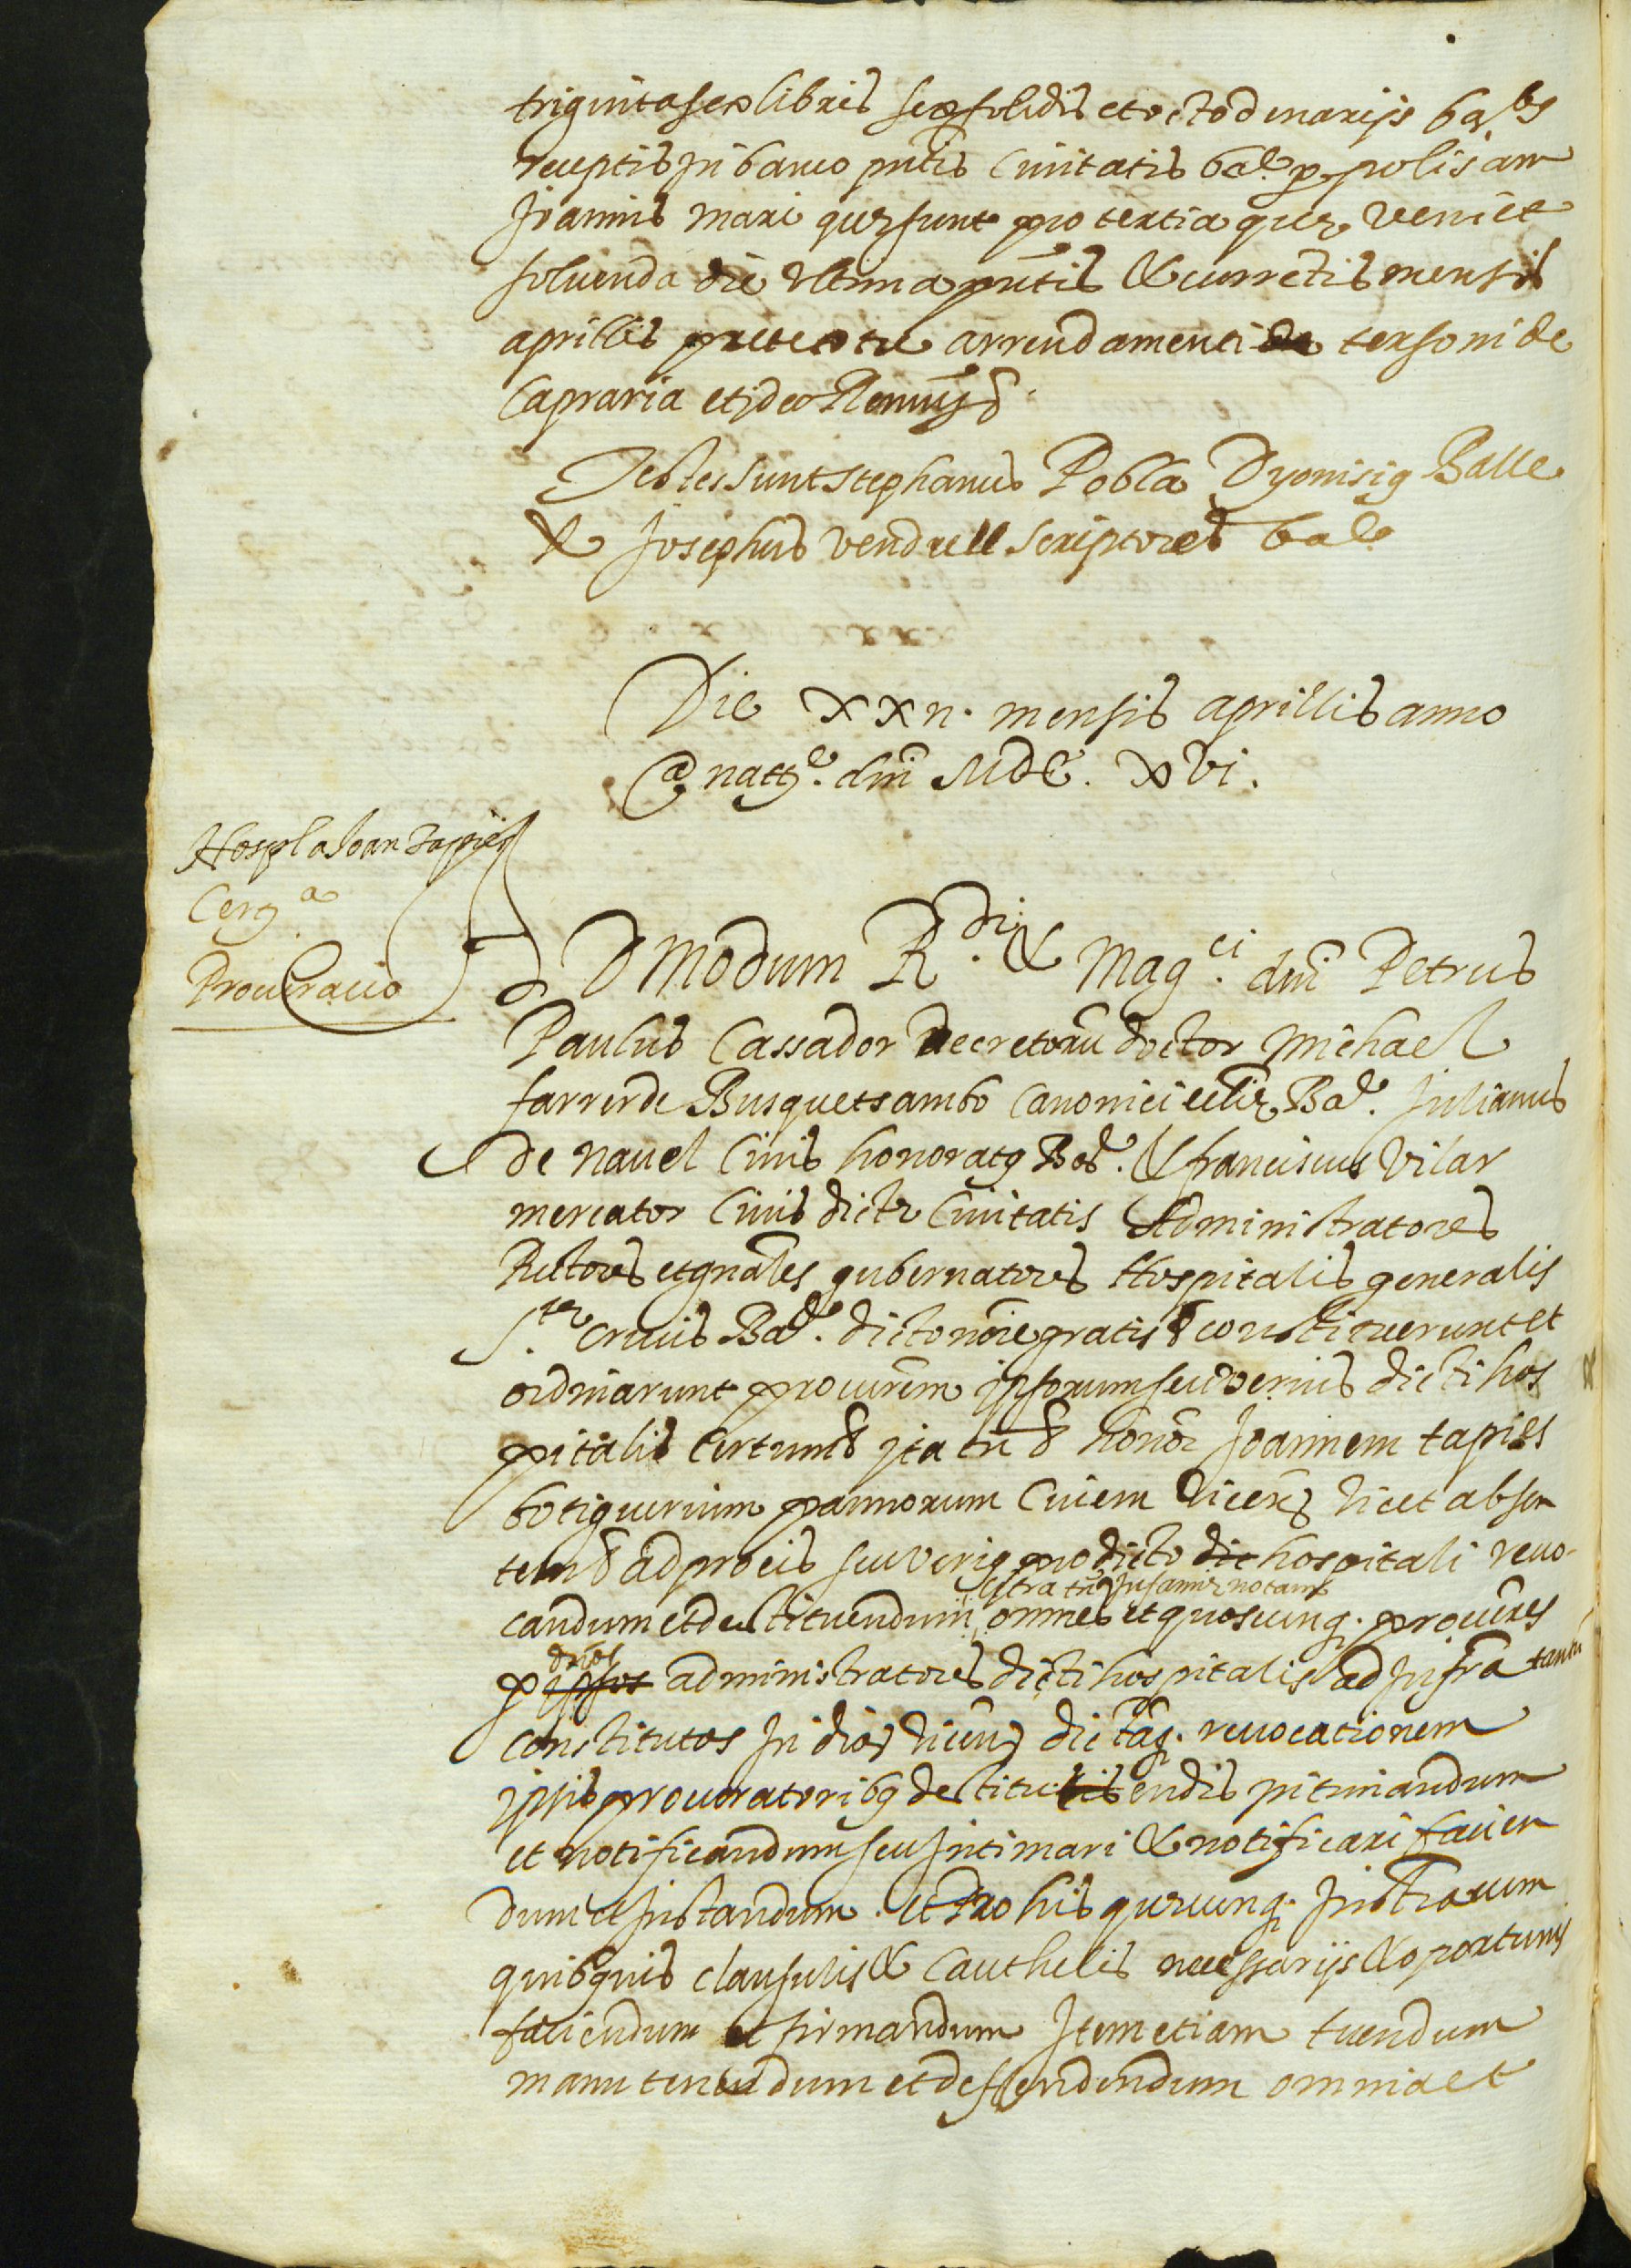 triginta sex libris sex solidis et octo denarijs barⁿˢ
receptis in banco pntis Civitatis bar. p. polisam
Joannis mari quæ sunt pro tertia quæ veniet
soluenda die ultima pntis & currētis mensis
aprillis pretextu arrendamenti de tersoni de
Capraria et ideo Renun §
Testes sunt Stephanus Pobla Dyonisiꝰ Balle
& Josephus vendrell scriptores bar.
Die xxii. mensis aprillis anno
a natte. dni MDC. xvi.
Hospl a Joan Tapies
Cerga
Procuracio
ADmodum R.di & Mag.ci dni Petrus
Paulus Cassador decretorū doctor Michael
farrer de Busquets ambo Canonici eccliæ Bar. Julianus
de navel Civis honoratꝰ Bar. & franciscus Vilar
mercator Civis dictæ Civitatis Administratores
Rectores et gnāles gubernatores Hospitalis generalis
S.tæ Crucis Bar. dicto nōie gratis § constituerunt et
ordinarunt procurēm ipsorum seu verius dicti hos
pitalis certum § ita tn § honor. Joannem tapies
botiguerium pannorum Civem Bar. licet absen
tem § ad pro eis seu veriꝰ pro dicto dic hospitali revo
candum et destituendum omnes et quoscunq. procures
citra tn infamiæ notam
p ipsos administratores dicti hospitalis ad infra
dnos
constitutos
revocationem
ipsis procuratoribꝰ destitutis endis intimandum
et notificandum seu intimari & notificari facien
dum et instandum. et Pro his quæcunq. instra cum
quibꝰvis clausulis & Cauthelis necessarijs & oportunis
faciendum et firmandum Item etiam tuendum
manutenendum et deffendendum omnia et